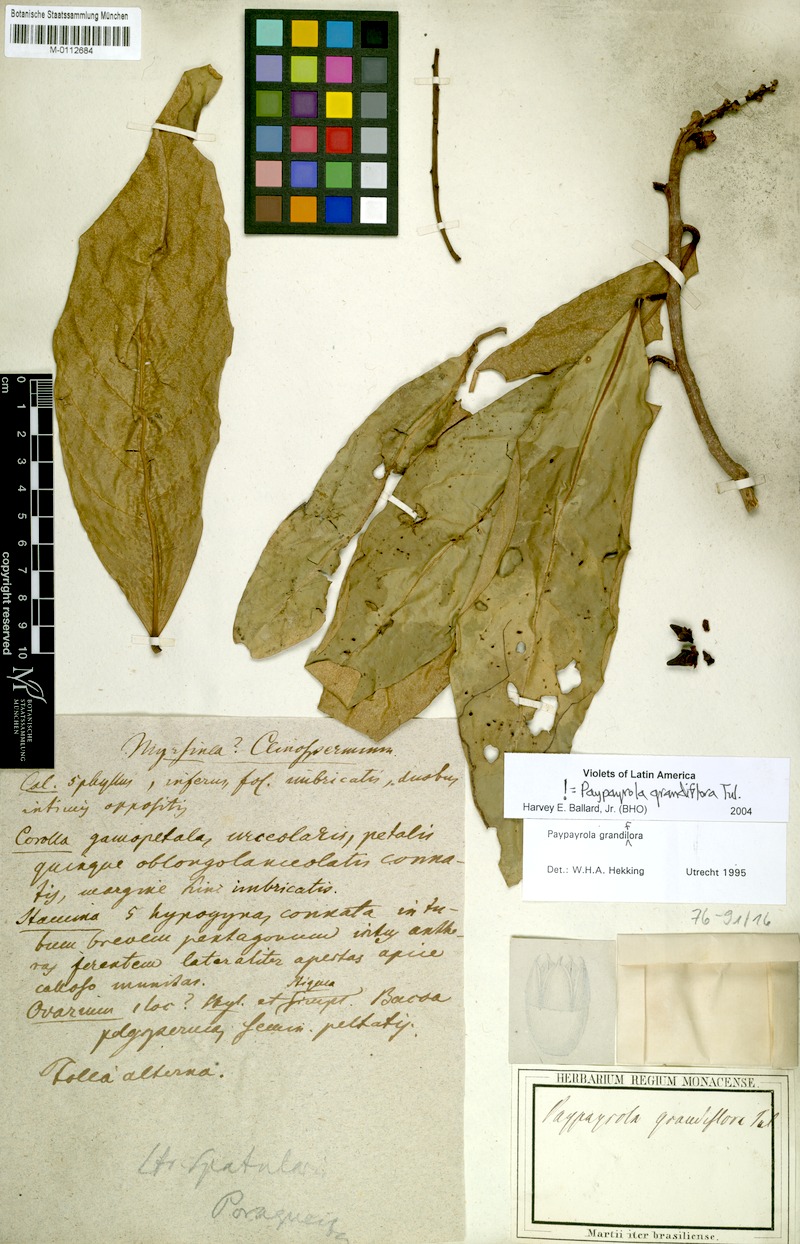 Botanische Staatssammlung München
M-0112684
cm 0 1 2 3 4 5 6 7 8 9 10
copyright reserved
BOTANISCHE
STAATSSAMMLUNG
MÜNCHEN
Myrsinea? Clinospermum
Cal. 5phyllus, inferus, fol. imbricatis, duobus
intimis oppositis
Corolla gamopetala, urceolaris, petalis
quinque oblongolanceolatis conna-
tis, margine hinc imbricatis.
Stamina 5 hypogyna, connata in tu-
bum brevem pentagonum intus anthe-
ras ferentem lateraliter apertas apice
calloso munitas.
Ovarium 1loc? Styl. et Stigma simpl. Bacca
polysperma, semin. peltatis.
Folia alterna.
Poraqueiba
Violets of Latin America
! = Paypayrola grandiflora Tul.
Harvey E. Ballard, Jr. (BHO) 2004
Paypayrola grandiflora
Det.: W.H.A. Hekking Utrecht 1995
76-91/16
HERBARIUM REGIUM MONACENSE.
Paypayrola grandiflora Tul
Martii iter brasiliense.